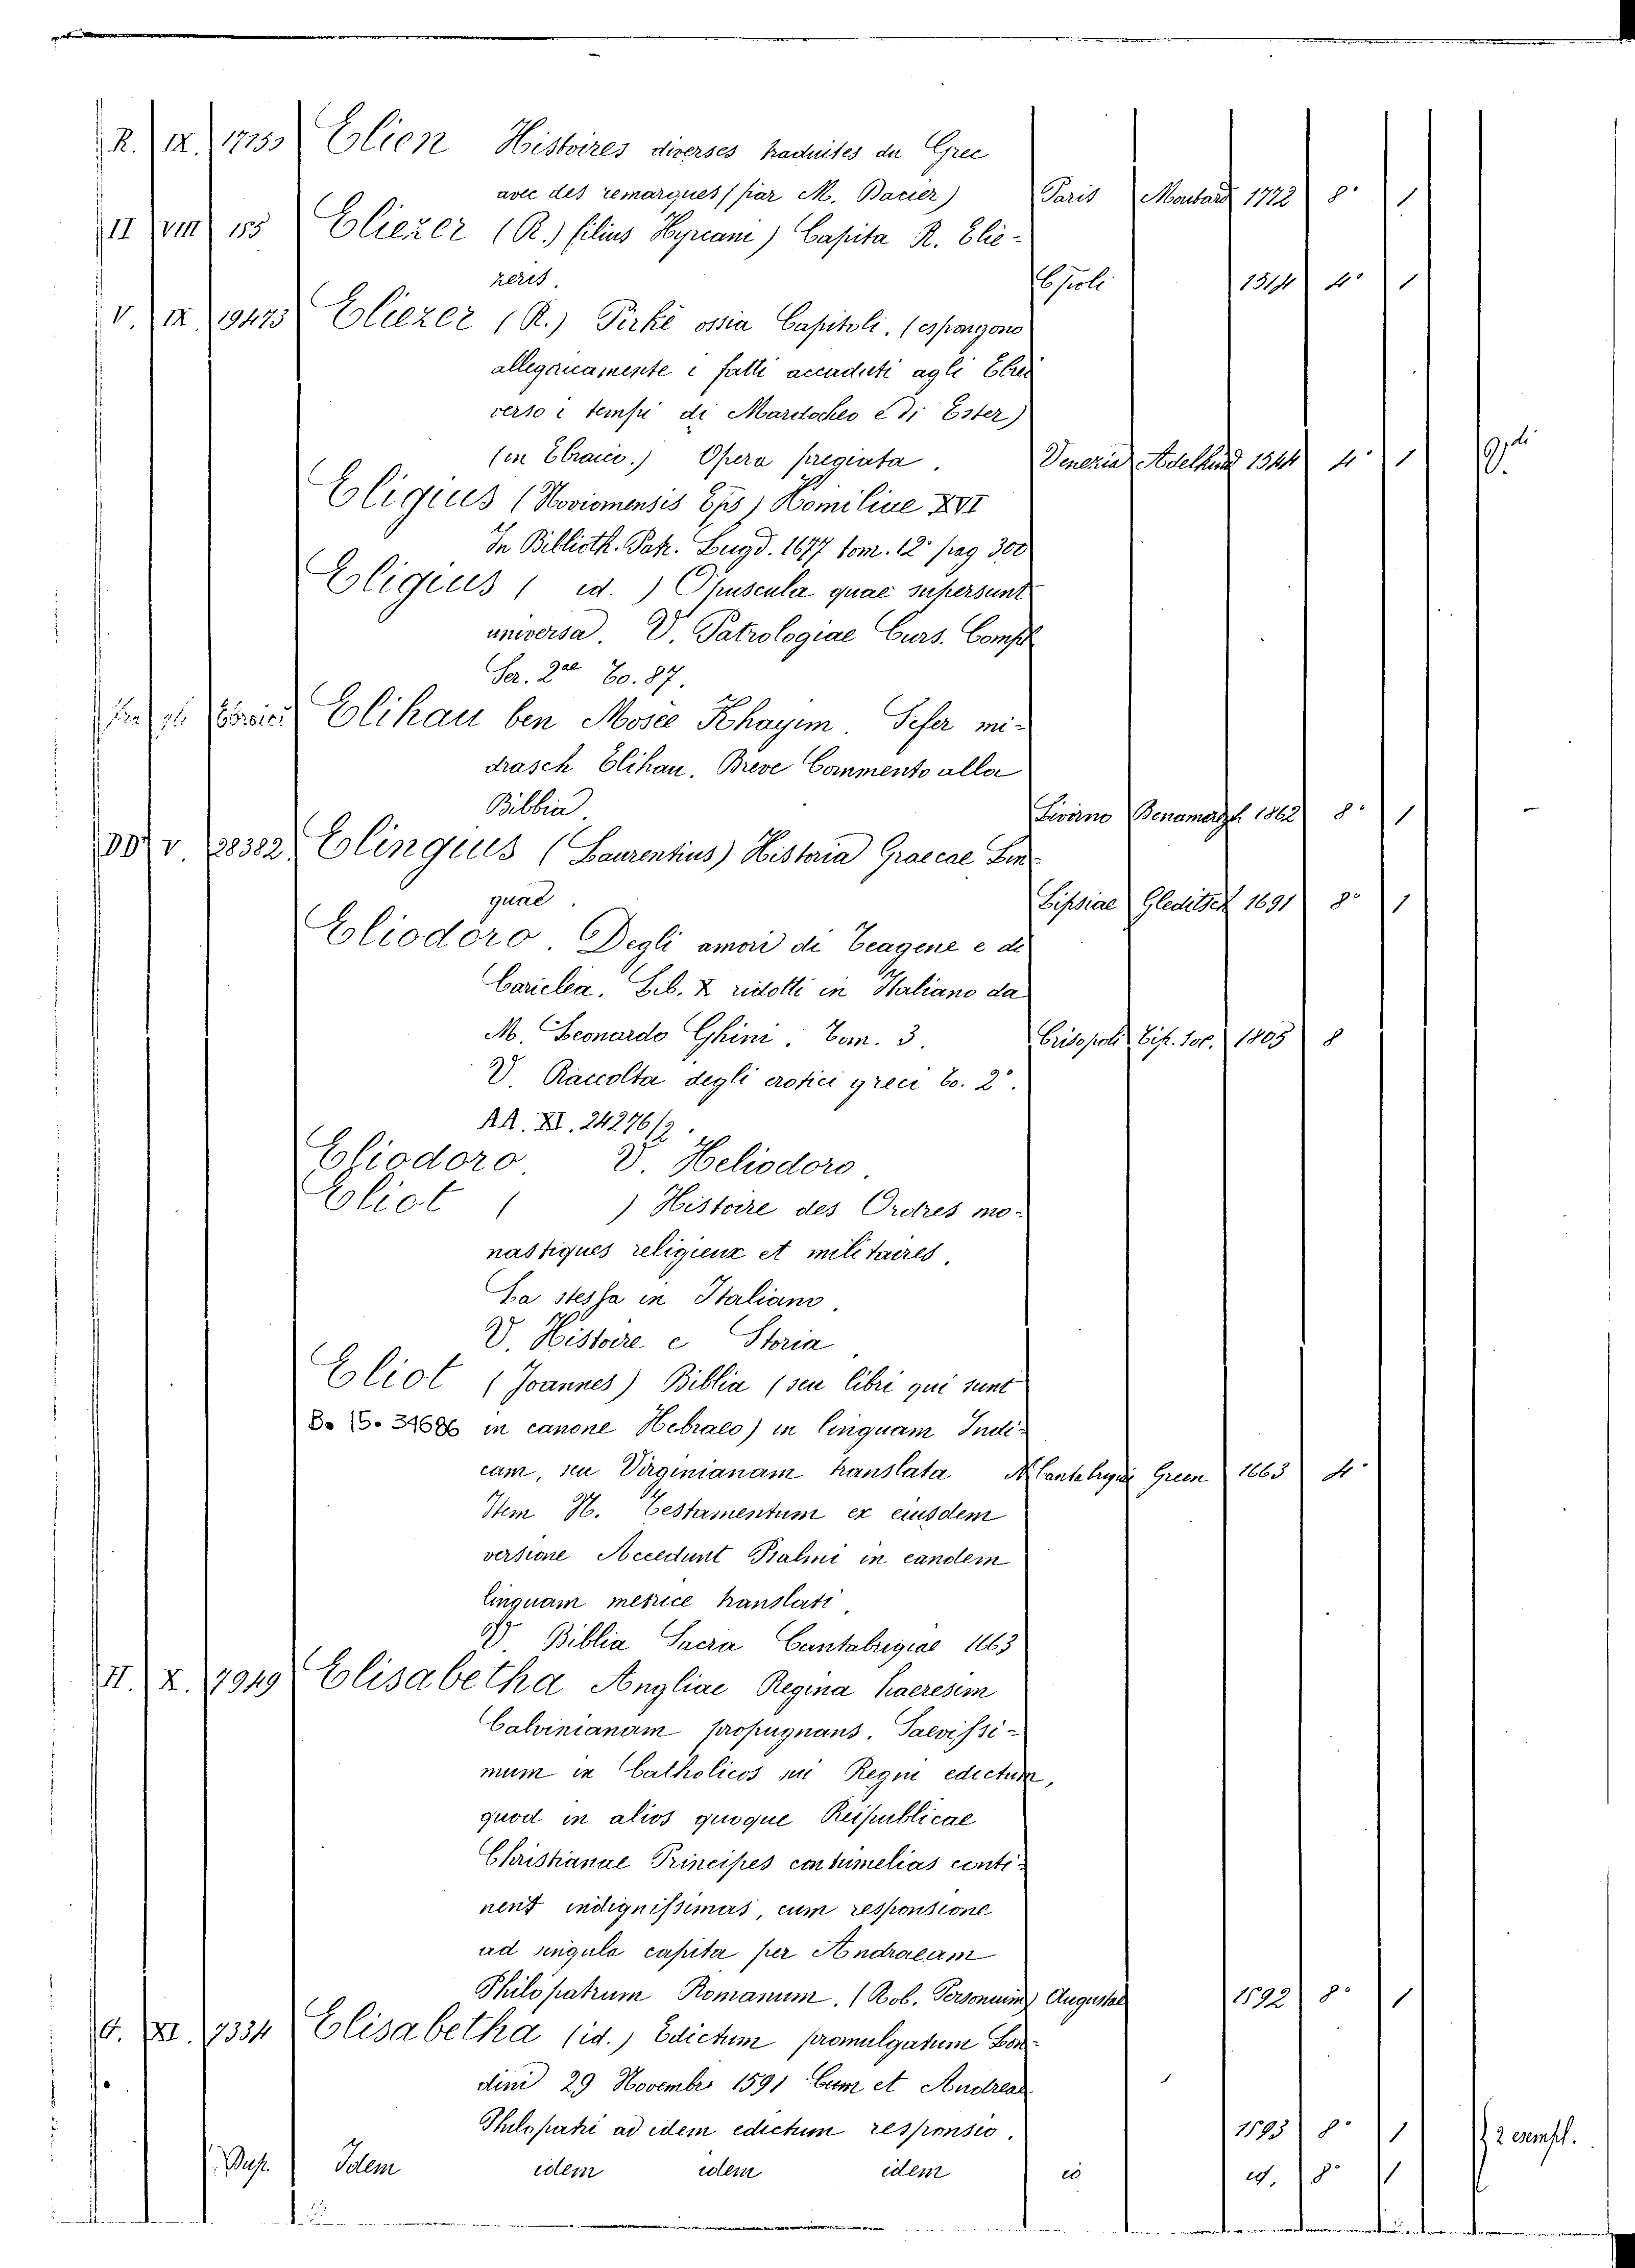 R. IX. 17153 Elien Histoires diverses traduites du Grec
avec des remarques (par M. Dacier) Paris Moutard 1772 8° 1
II VIII 155 Eliezer (R.) filius Hyrcani) Capita R. Elie-
zeris. Cpoli 1514 4° 1
V. IX 19473 Eliezer (R.) Pirké ossia Capitoli. (espongono
allegoricamente i fatti accaduti agli Ebrei
verso i tempi di Mardocheo e di Ester)
(in Ebraico.) Opera pregiata. Venezia Adelkind 1544 4° 1
Eligius (Noviomensis Eps) Homiliae XVI
In Biblioth. Patr. Lugd. 1677 tom. 12° pag 300
Eligius ( id. ) Opuscula quae supersunt
universa. V. Patrologiae Curs. Compl
Ser. 2ae To. 87.
Fra gli Ebraici Elihau ben Mosèe Khayim. Sefer mi-
drasch Elihau. Breve Commento alla
Bibbia. Livorno 1862 8° 1
V 28382 Elingius (Laurentius) Historia Graecae Lin-
guae. Lipsiae Gleditsch 1691 8° 1
Eliodoro. Degli amori di Teagene e di
Cariclea. Lib. X ridotti in Italiano da
M. Leonardo Ghini. Tom. 3. Crisopoli Tip. soc. 1805 8
V. Raccolta degli erotici greci to. 2°.
AA. XI. 24276/2.
Eliodoro V. Heliodoro.
Eliot ( ) Histoire des Ordres mo-
nastiques religieux et militaires.
La stessa in Italiano.
V. Histoire e Storia
Eliot (Joannes) Biblia (seu libri qui sunt
B. 15. 34686 in canone Hebraeo) in linguam Indi-
cam, seu Virginianam translata Cantabrigiae Green 1663 4°
Item N. Testamentum ex eiusdem
versione Accedunt Psalmi in eandem
linguam metrice translati.
V. Biblia Sacra Cantabrigiae 1663
II. X. 7949 Elisabetha Angliae Regina haeresim
Calvinianam propugnans. Saevissi-
mum in Catholicos sui Regni edictum,
quod in alios quoque Reipublicae
Christianae Principes contumelias conti-
nent indignissimas, cum responsione
ad singula capita per Andraeam
Philopatrum Romanum. (Rob. Personium) Augustae 1592 8° 1
XI. 7334 Elisabetha (id.) Edictum promulgatum Lon-
dini 29 Novembr. 1591 Cum et Andreae
Philopatri ad idem edictum responsio. 1593 8° 1 2 esempl.
Dup. Idem idem idem idem id. 8° 1